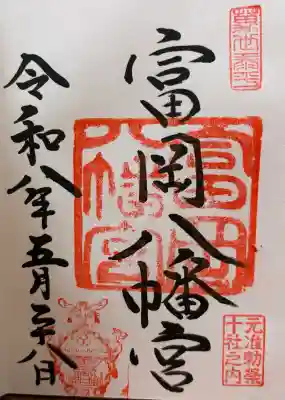 富岡八幡宮
富岡
八幡宮
元准勅祭
十社之内
令和八年五月二十八日